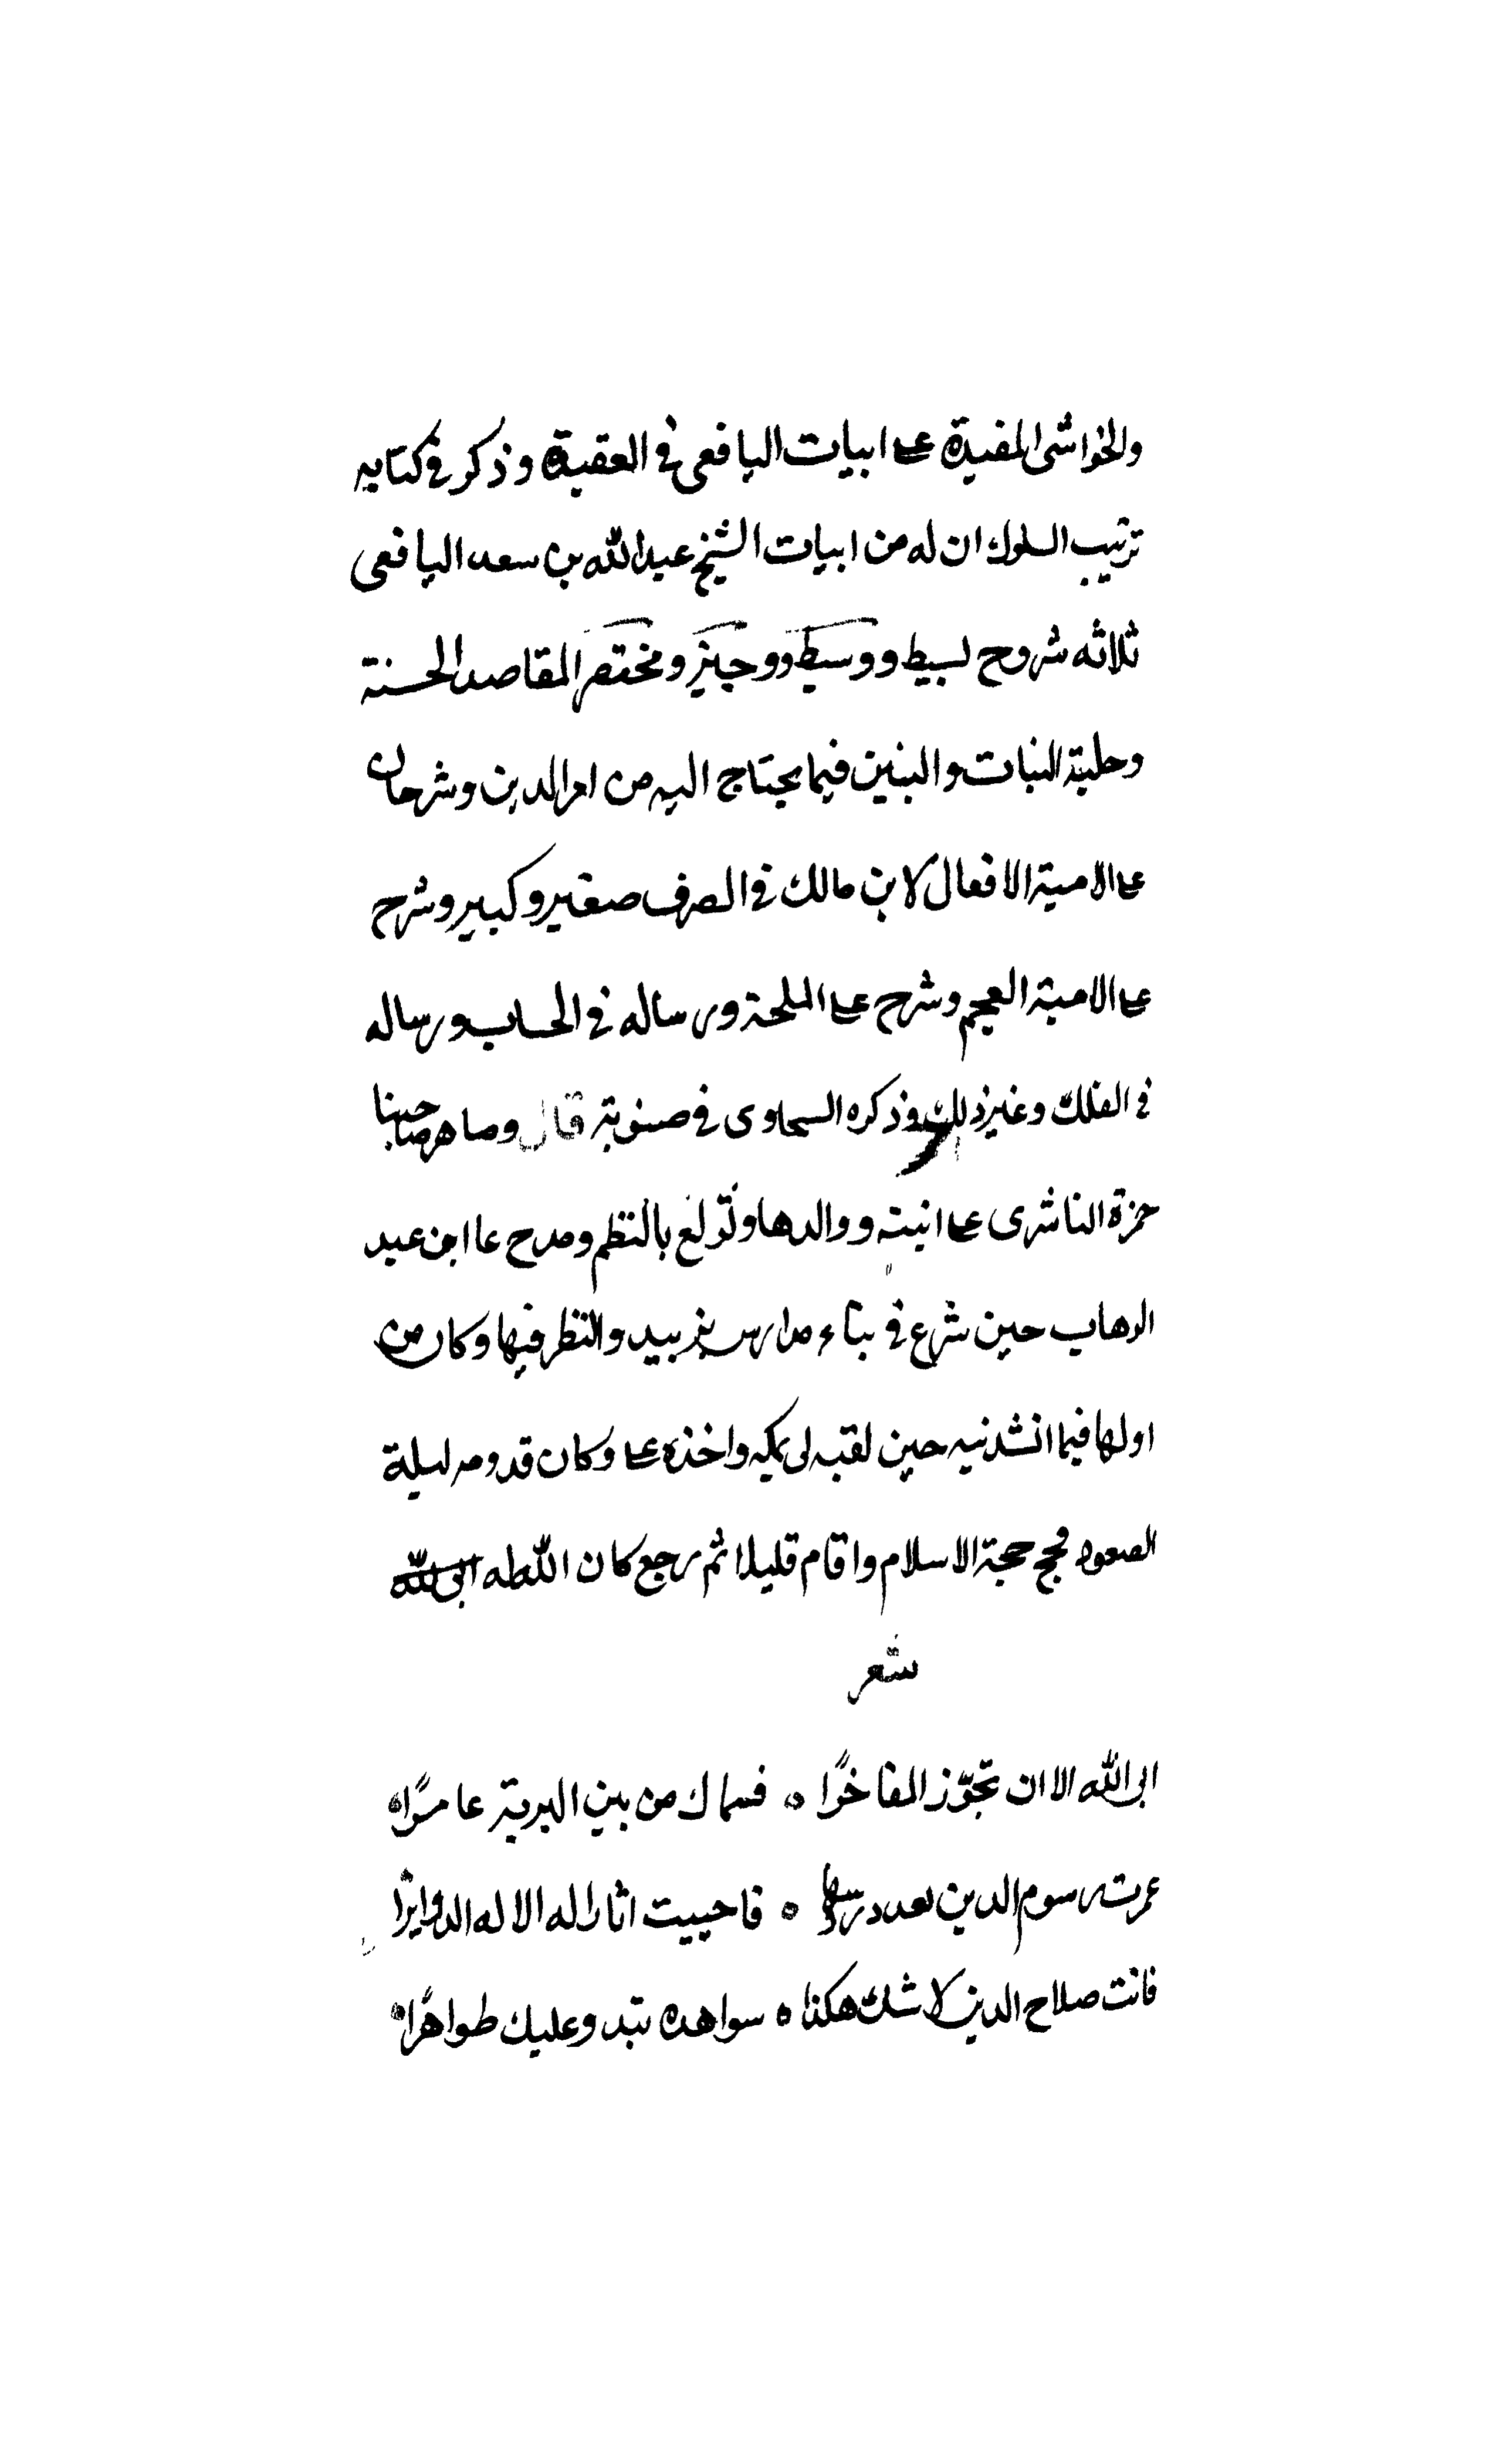 والحواشى المفيدة على ابيات اليافعى فى العقيدة وذكر فى كتابه
ترتيب السلوك ان له من ابيات الشيخ عبدالله بن سعد اليافعى
ثلاثه شروح بسيط ووسيط ووجيز ومختصر المقاصد الحسنة
وحلية البنات والبنين فيما يحتاج اليه من امر الدين وشرحان
على لامية الافعال لابن مالك فى الصرف صغير وكبير وشرح
على لامية العجم وشرح على الملحة ورساله فى الحساب ورساله
فى الفلك وغير ذلك وذكره السخاوى فى قال وصاهر صاحبنا
حمزة الناشرى على ابنته ووالدها وتولع بالنظم ومدح عا ابن عبد
الوهاب حين شرع فى بناء مدارس بزبيد والنظر فيها وكان من
اولها فيما انشدنيه حين لقيه لى بمكه واخذه على وكان قدومه ليلة
الصعود فحج حجة الاسلام واقام قليلا ثم رجع كان الله له
شعر
ابى الله الا ان تحوز المفاخرا ه فسماك من بين البرية عامرا ه
عمرت رسوم الدين بعد درسها ه فاحييت اثار اله الاله الدواثرا
فانت صلاح الدين لا شك هكذا ه سواهده تبدو عليك ظواهرا ه